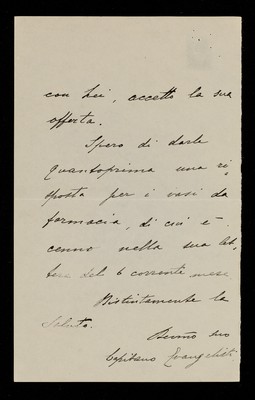 con Lei, accetto la sua
offerta.
Spero di darle
quantoprima una ri,
sposta per i vasi da
farmacia, di cui è
cenno nella sua let,
tera del 6 corrente mese
Distintamente la
saluto.
Devmo suo
Capitano Evangelisti